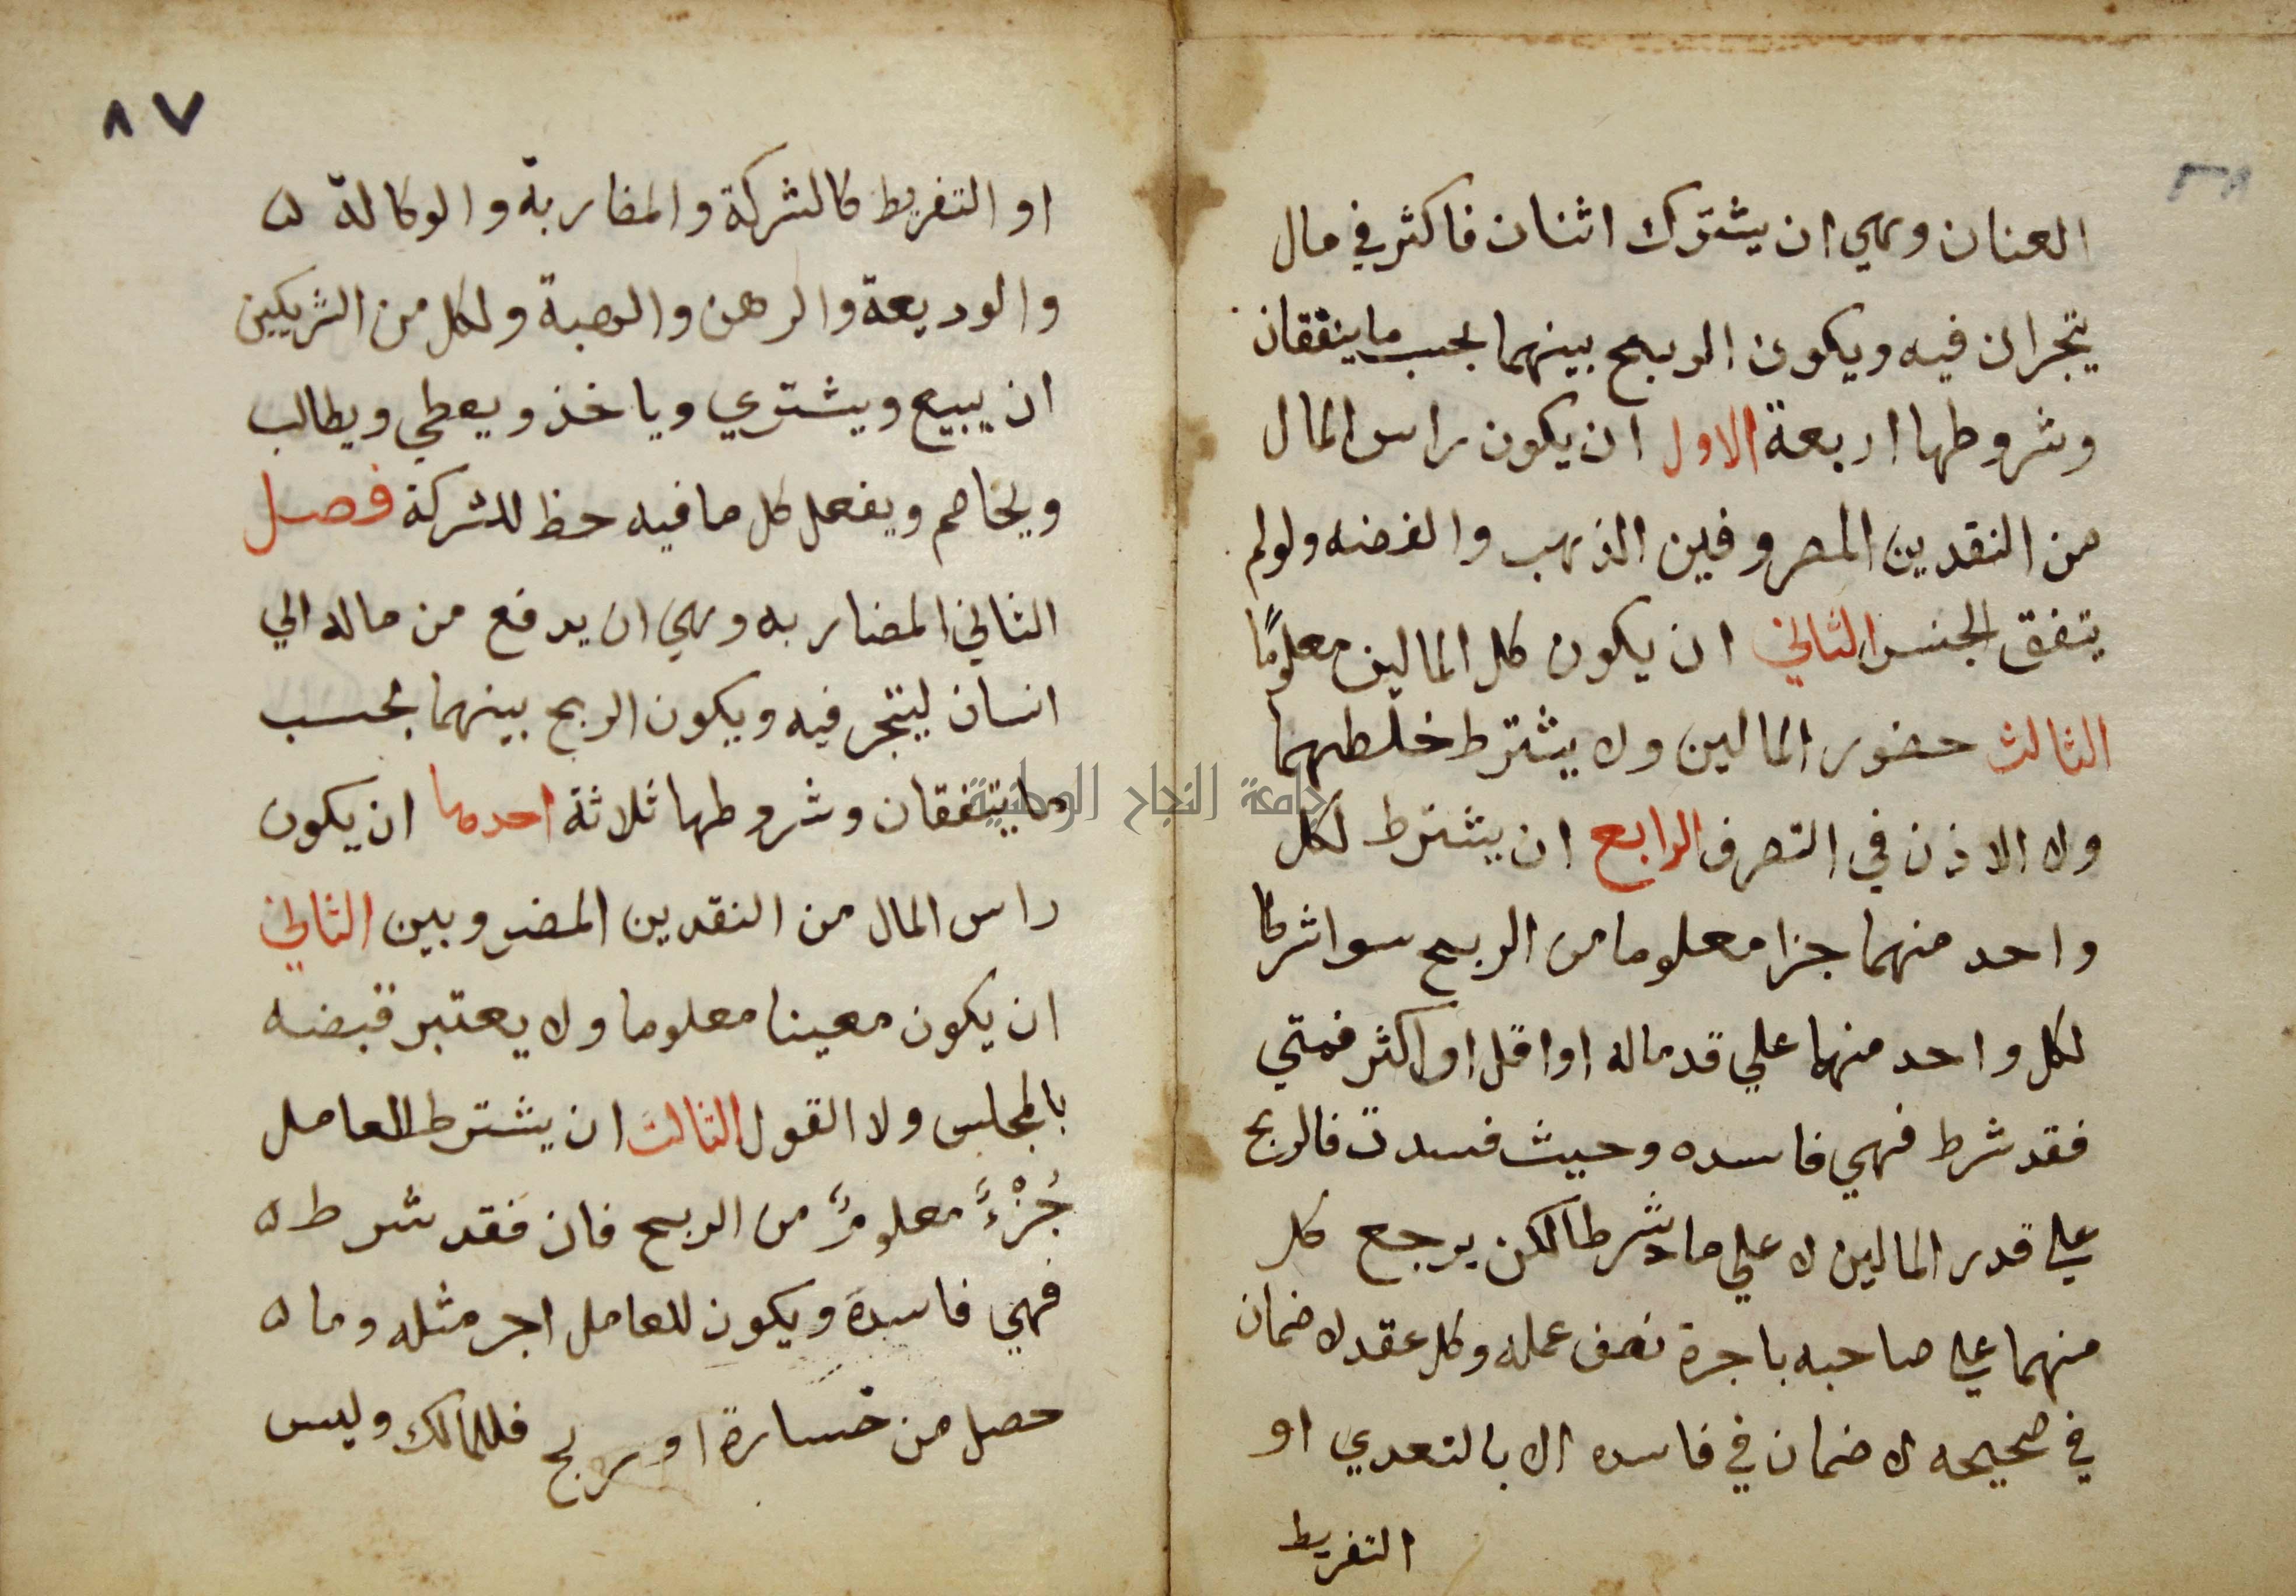 العنان وهي ان يشترك اثنان فاكثر في مال
يتجران فيه ويكون الربح بينهما بحسب ما يتفقان
وشروطها اربعة الاول ان يكون راس المال
من النقدين المضروفين الذهب والفضه ولو لم
يتفق الجنس الثاني ان يكون كل المالين معلومًا
الثالث حضور المالين ولا يشترط خلطهما
ولا الاذن في التصرف الرابع ان يشترط لكل
واحد منهما جزا معلوما من الربح سوا شرطا
لكل واحد منهما علي قد ماله او اقل او اكثر فمتي
فقد شرط فهي فاسده وحيث فسدت فالربح
علي قدر المالين لا علي ما شرطا لكن يرجع كل
منهما علي صاحبه باجرة نصف عمله وكل عقد لا ضمان
في صحيحه لا ضمان في فاسده الا بالتعدي او
التفريط
٨٧
او التفريط كالشركة والمضاربة والوكالة
والوديعة والرهن والهبة ولكل من الشريكين
ان يبيع ويشتري وياخذ ويعطي ويطالب
ويخاصم ويفعل كل ما فيه حظ للشركة فصل
الثاني المضاربه وهي ان يدفع من ماله الي
انسان ليتجر فيه ويكون الربح بينهما بحسب
ما يتفقان وشروطها ثلاثة احدها ان يكون
راس المال من النقدين المضروبين الثاني
ان يكون معينا معلوما ولا يعتبر قبضه
بالمجلس ولا القول الثالث ان يشترط للعامل
جُزْءً معلومً من الربح فان فقد شرط
فهي فاسدة ويكون للعامل اجر مثله وما
حصل من خسارة او ربح فللمالك وليس
جامعة النجاح الوطنية